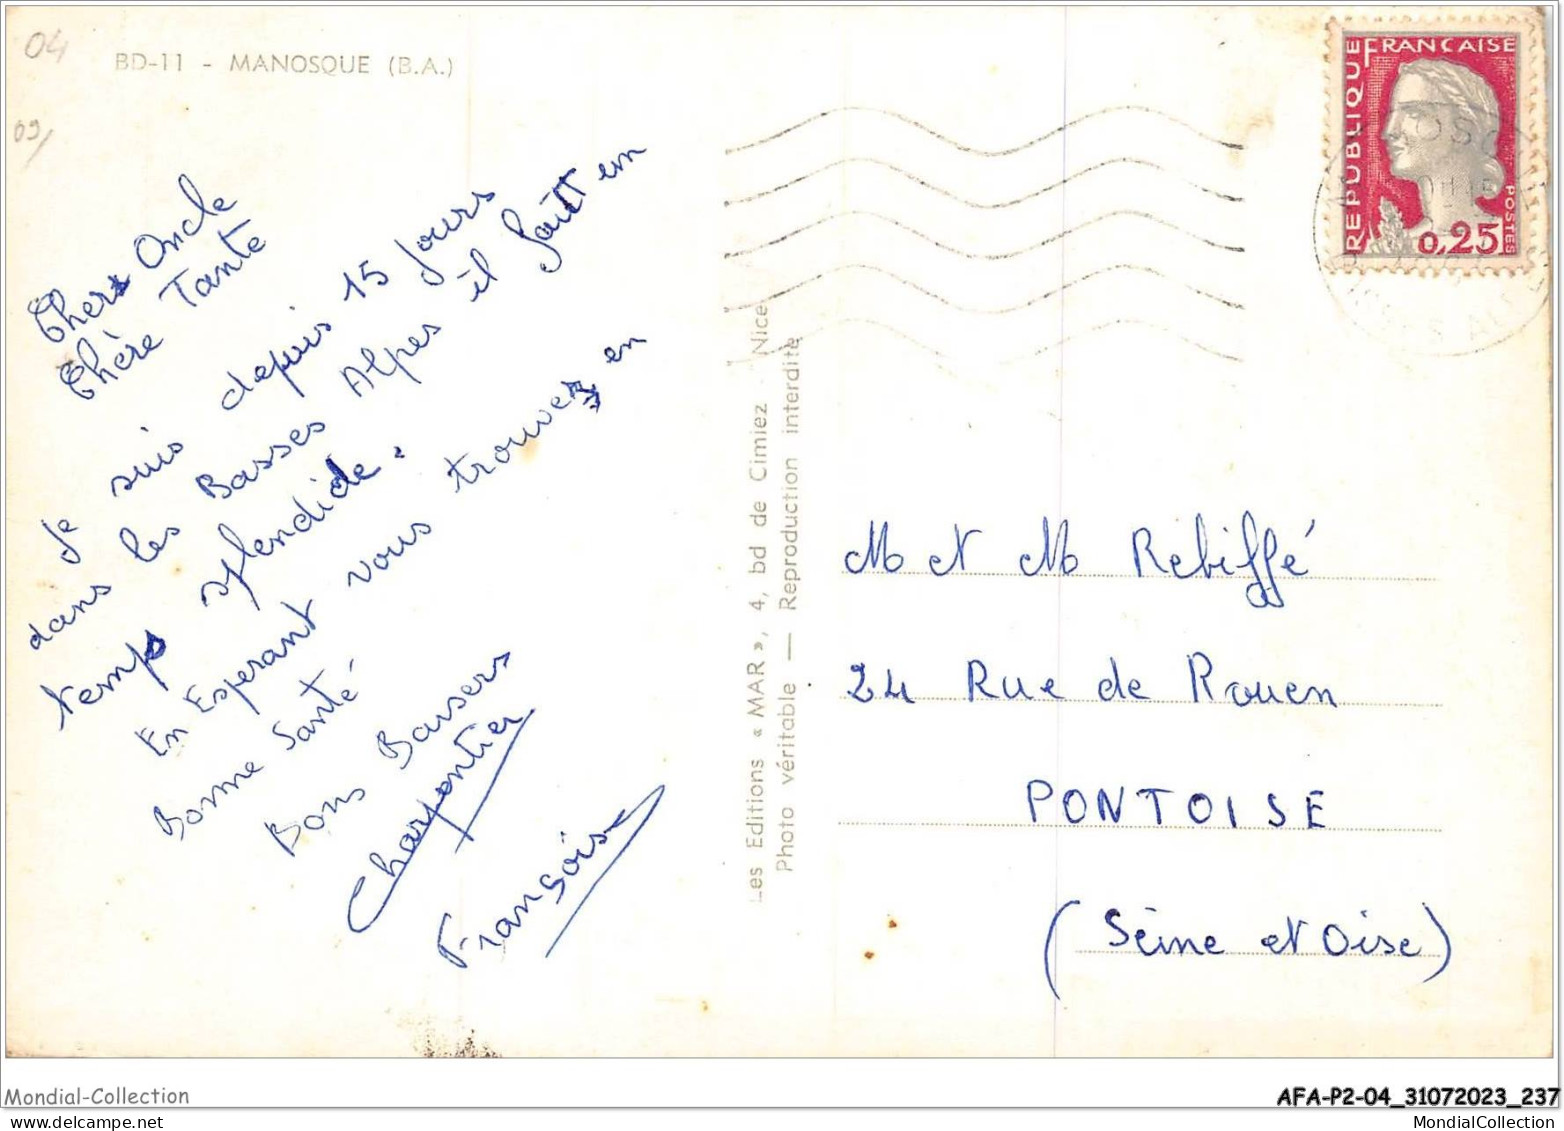 04
BD-11 - MANOSQUE (B.A.)
09/
Chers Oncle
Chère Tante
Je suis depuis 15 jours
dans les Basses Alpes il fait un
temps splendide.
En Esperant vous trouver en
Bonne Santé
Bons Baisers
Charpentier
Françoise
Les Editions « MAR », 4, bd de Cimiez - Nice
Photo véritable — Reproduction interdite
REPUBLIQUE FRANCAISE
POSTES
0,25
M et M Rebiffé
24 Rue de Rouen
PONTOISE
(Seine et Oise)
Mondial-Collection
AFA-P2-04_31072023_237
MondialCollection.com